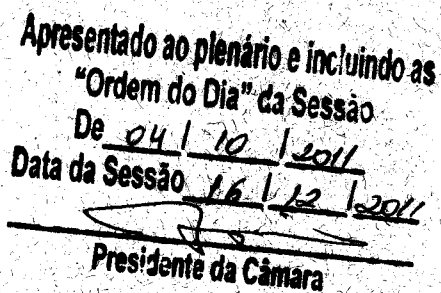 Apresentado ao plenário e incluindo as
“Ordem do Dia” da Sessão
De 04 / 10 / 2011
Data da Sessão 16 / 12 / 2011
Presidente da Câmara